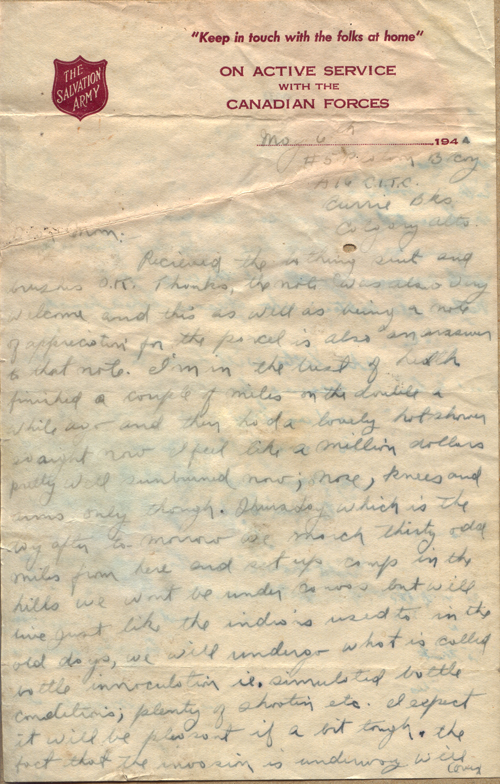 "Keep in touch with the folks at home"
THE
SALVATION
ARMY
ON ACTIVE SERVICE
WITH THE
CANADIAN FORCES
194
B Coy
A16 C.I.T.C.
Currie Bks
Calgary Alta.
Mom:
Recieved the bathing suit and
brushes O.K. Thanks, the note was also very
welcome and this as well as being a note
of appreciation for the parcel is also an answer
to that note. I'm in the best of health
finished a couple of miles on the double a
while ago and then had a lovely hot shower
so right now I feel like a million dollars
pretty well sunburned now; nose, knees and
arms only though. Thursday which is the
day after to-morrow we march thirty odd
miles from here and set up camp in the
hills we wont be under canvas but will
live just like the indians used to in the
old days, we will undergo what is called
battle innoculation ie. simulated battle
conditions; plenty of shootin etc. I expect
it will be pleasant if a bit tough. the
fact that the invasion is underway will
(over